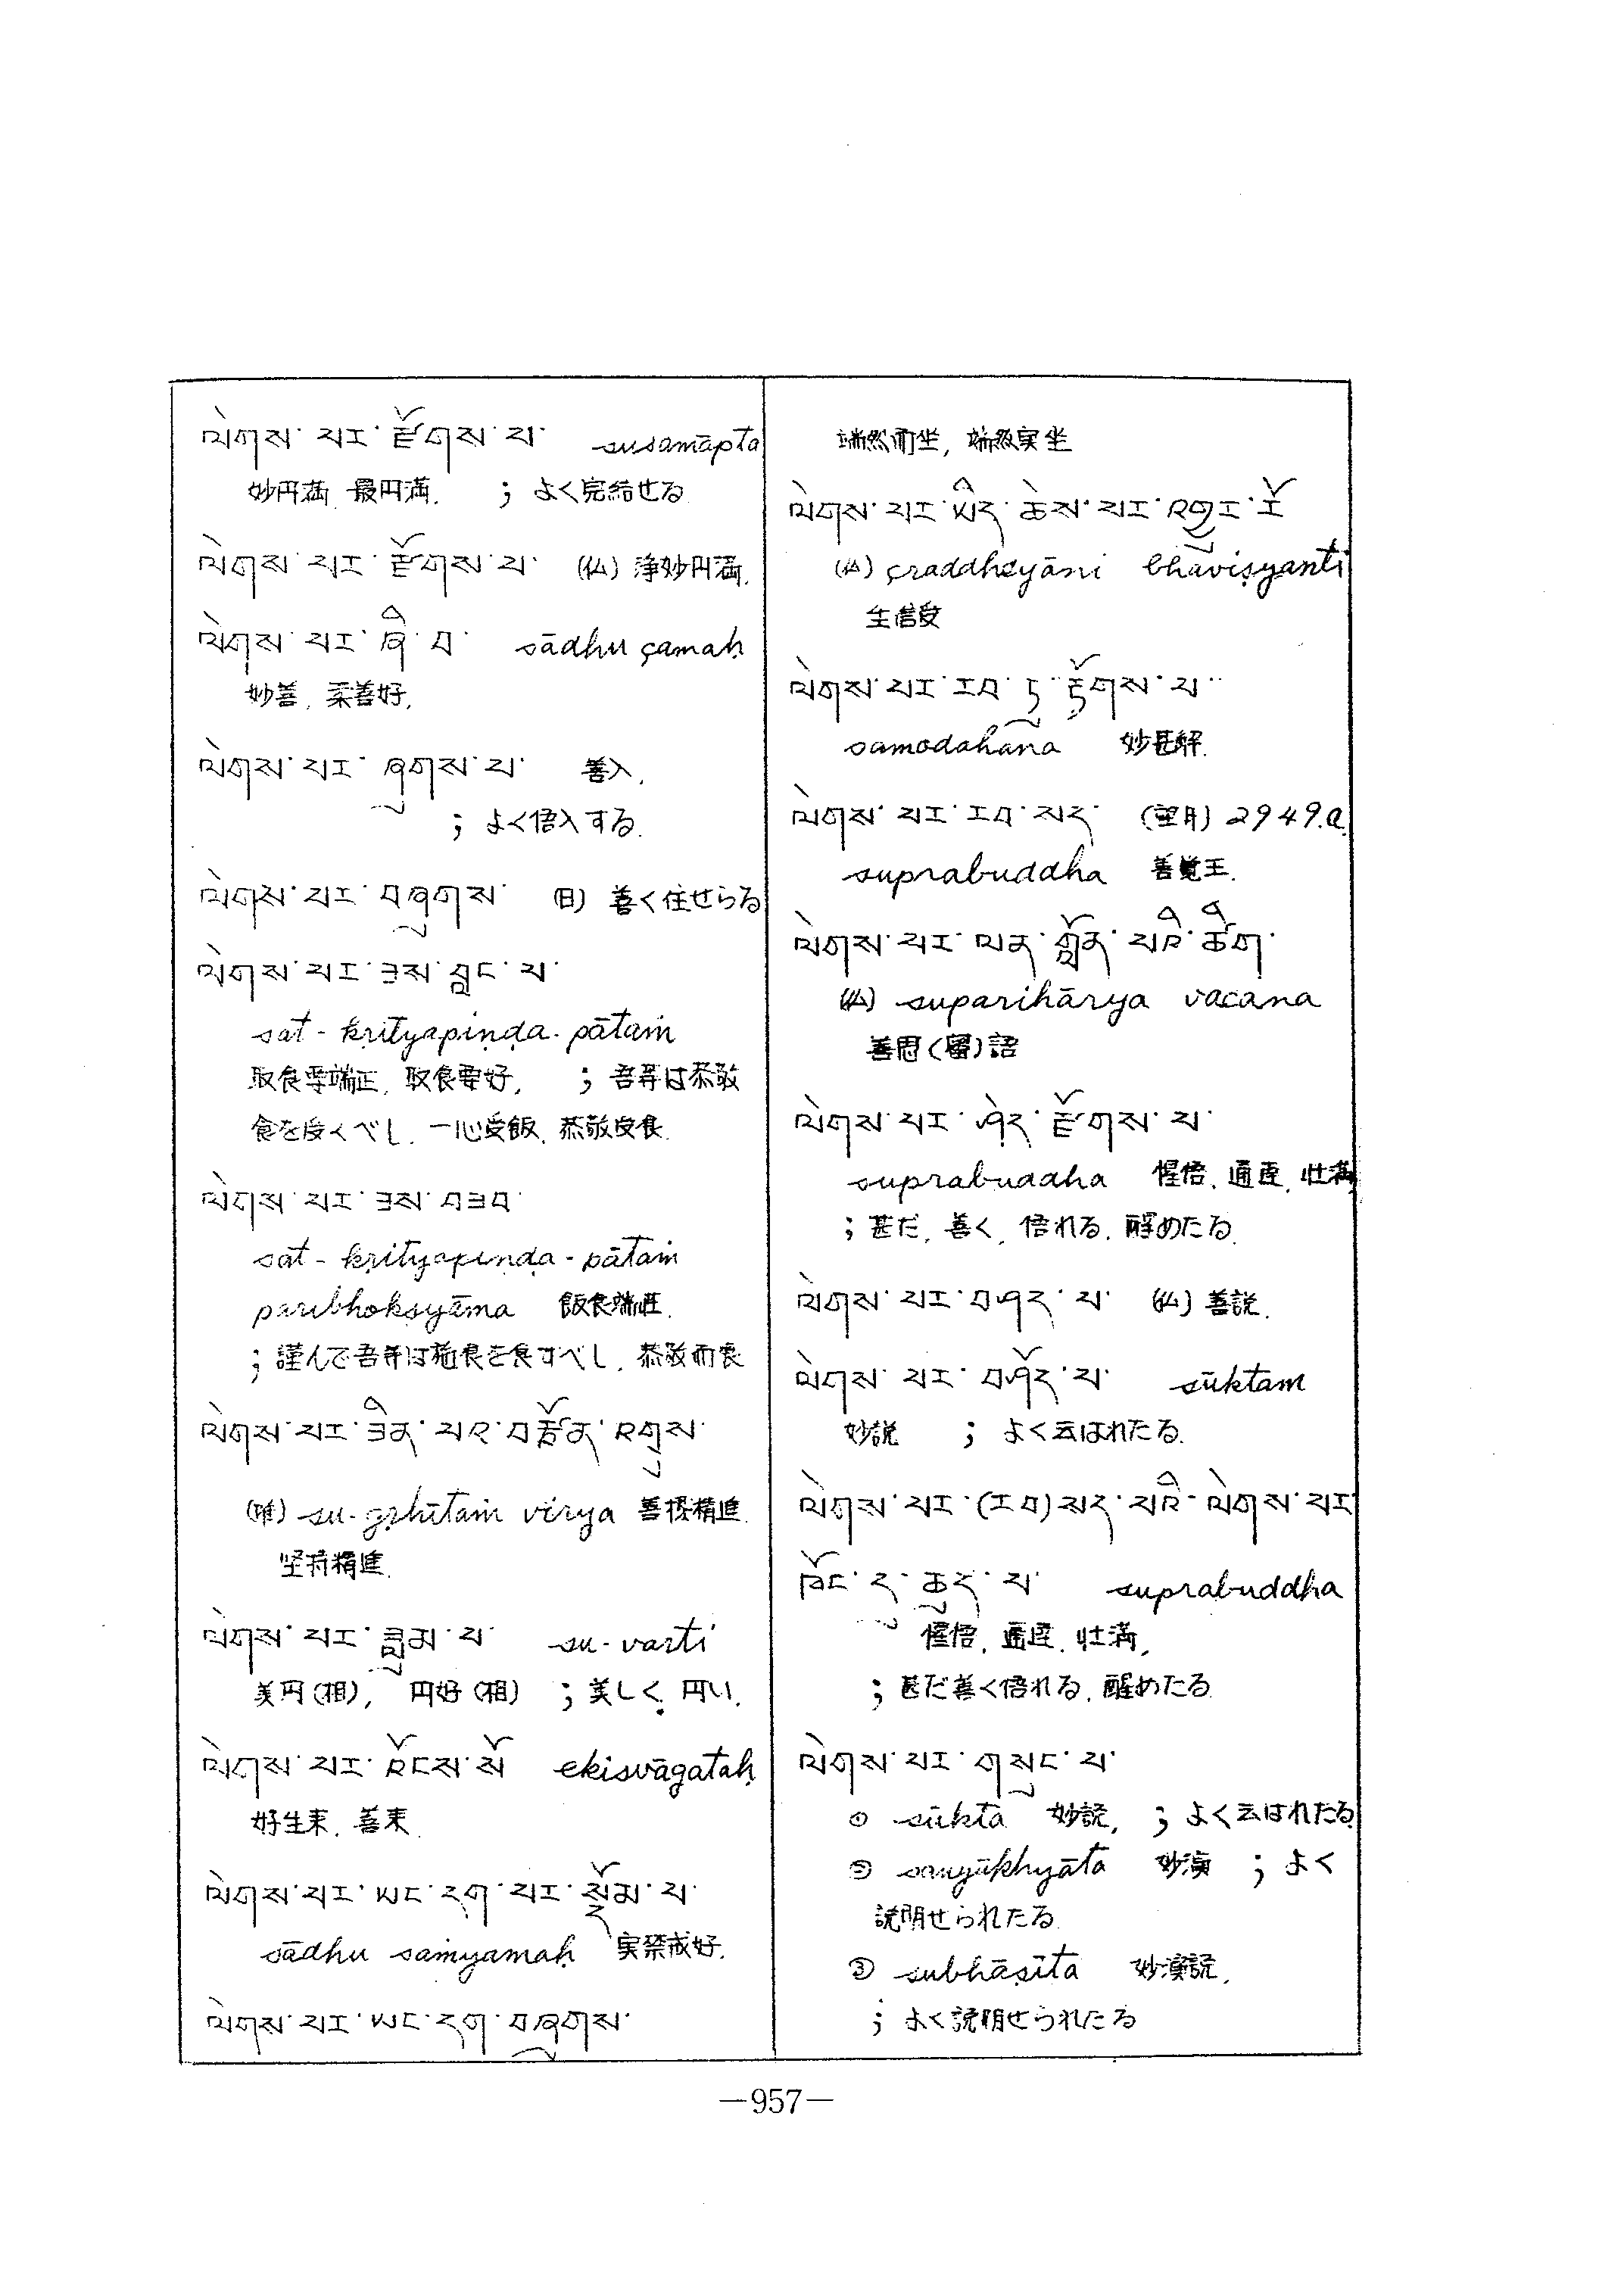 ལེགས་པར་རྫོགས་པ་ susamāpta
妙円満 最円満. ; よく完結せる
ལེགས་པར་རྫོགས་པ་ (仏) 浄妙円満.
ལེགས་པར་ཞི་བ་ sādhu çamaḥ
妙善, 柔善好,
ལེགས་པར་ཞུགས་པ་ 善入,
; よく悟入する.
ལེགས་པར་བཞུགས་ 日) 善く住せらる
ལེགས་པར་ཟས་བླང་པ་
sat-kṛityapiṇḍa-pātaṁ
取食要端正, 取食要好, ; 吾等は恭敬
食を受くべし, 一心受飯, 恭敬受食.
ལེགས་པར་ཟས་བཟབ་
sat-kṛityapiṇḍa-pātaṁ
paribhokṣyāma 飯食端荘.
; 謹んで吾等は施食を食すべし, 恭敬而喪
ལེགས་པར་ཟིན་པར་བརྩོན་འགུས་
su-gṛhītaṁ vīrya 善授精進.
坚持精進.
ལེགས་པར་ཟླུམ་པ་ su-varti
美円(相), 円好(相) ; 美しく, 円い.
ལེགས་པར་འོངས་སོ ekisvāgataḥ
好生来, 善来
ལེགས་པར་ཡང་དག་པར་སྡོམ་པ་
sādhu saṁyamaḥ 実禁戒好.
ལེགས་པར་ཡང་དག་བཞུགས་
端然而坐, 端然実坐
ལེགས་པར་ཡིད་ཆེས་པར་འགྱུར་རོ
(仏) çraddheyāni bhaviṣyanti
生信受
ལེགས་པར་རབ་ཏུ་རྟོགས་པ་
samodahana 妙甚解.
ལེགས་པར་རབ་སད་ (望月) 2949.a.
suprabuddha 善覚王.
ལེགས་པར་ལན་གློན་པའི་ཚིག་
(仏) suparihārya vacana
善思(留)語
ལེགས་པར་ཤེར་རྫོགས་པ་
suprabuddha 惺悟, 通達, 壮満
; 甚だ, 善く, 悟れる, 醒めたる.
ལེགས་པར་བཤད་པ་ (仏) 善説.
ལེགས་པར་བཤོད་པ་ sūktam
妙説 ; よく云はれたる.
ལེགས་པར་(རབ)སད་པའི་ལེགས་པར
ཁོང་དུ་ཆུད་པ་ suprabuddha
惺悟, 通達, 壮満,
; 甚だ善く悟れる, 醒めたる
ལེགས་པར་གསུང་པ་
① sūkta 妙説, ; よく云はれたる
② 妙演 ; よく
説明せられたる.
③ subhāṣita 妙演説,
; よく説明せられたる
—957—